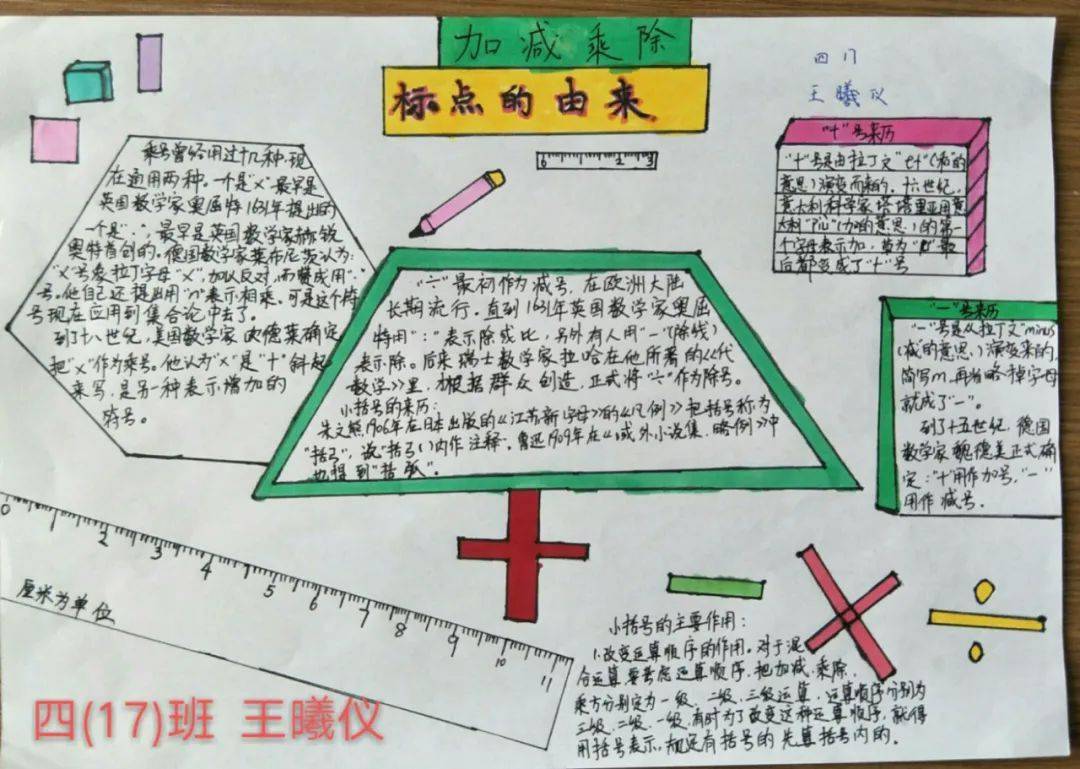 加减乘除
标点的由来
四17
王曦仪
乘号曾经用过十几种,现
在通用两种。一个是"×"最早是
英国数学家奥屈特1631年提出的
一个是"·",最早是英国数学家赫锐
奥特首创的。德国数学家莱布尼茨认为:
"×"号象拉丁字母"X",加以反对,而赞成用"·"
号。他自己还提出用"n"表示相乘。可是这个符
号现在应用到集合论中去了。
到了十八世纪,美国数学家欧德莱确定
把"×"作为乘号。他认为"×"是"十"斜起
来写,是另一种表示增加的
符号。
0 1 2 3
"÷"最初作为减号,在欧洲大陆
长期流行。直到1631年英国数学家奥屈
特用":"表示除或比,另外有人用"一"(除线)
表示除。后来瑞士数学家拉哈在他所著的《代
数学》里,才根据群众创造,正式将"÷"作为除号。
小括号的来历:
朱文熊1906年在日本出版的《江苏新字母》的《凡例》把括号称为
"括弓",说"括弓()内作注释"。鲁迅1909年在《域外小说集.略例》中
也得到"括弧"。
"十"号来历
"十"号是由拉丁文"et"(和的
意思)演变而来的。十六世纪,
意大利科学家塔塔里亚用意
大利"Piu"(加的意思)的第一
个字母表示加,草为"μ"最
后都变成了"十"号
"一"号来历
"一"号是从拉丁文"minus
(减的意思)演变来的,
简写m,再省略掉字母
就成了"一"。
到了十五世纪,德国
数学家魏德美正式确
定:"十"用作加号,"一"
用作减号。
0 1 2 3 4 5 6 7 8 9 10 11
厘米为单位
小括号的主要作用:
1.改变运算顺序的作用。对于混
合运算,要考虑运算顺序,把加减.乘除.
乘方分别定为一级、二级、三级运算,运算顺序分别为
三级、二级、一级,有时为了改变这种运算顺序,就得
用括号表示,规还有括号的先算括号内的。
四(17)班 王曦仪